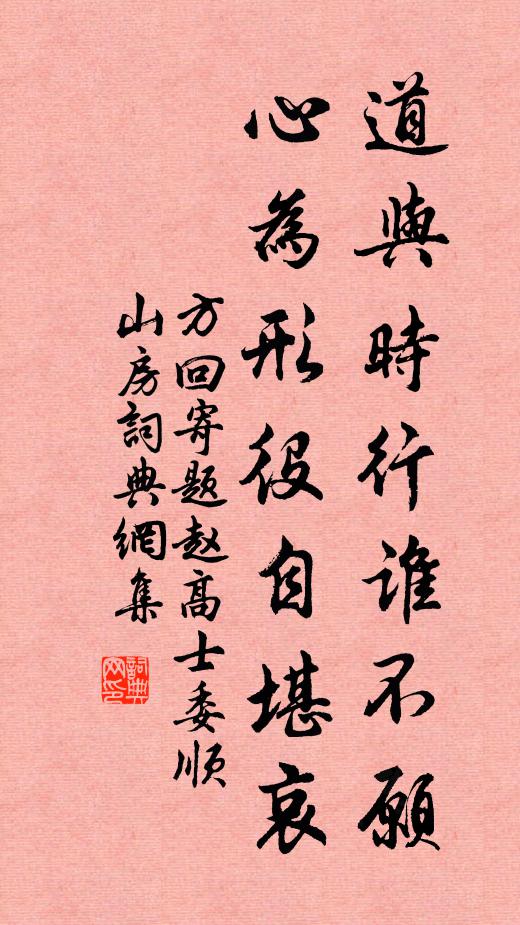 道與時行誰不願
心為形役自堪哀
方回寄題赵高士委顺
山房詞典網集
詞典網印